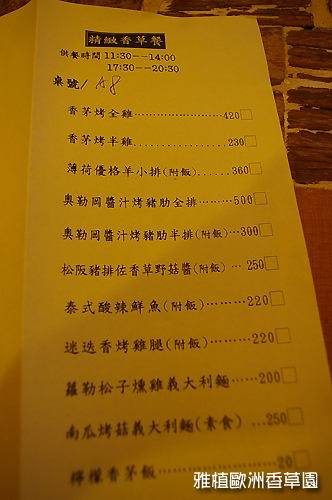 精緻香草餐
供餐時間 11:30--14:00
17:30--20:30
桌號/ A8
香茅烤全雞..................420□
香茅烤半雞..................230□
薄荷優格羊小排(附飯)......360□
奧勒岡醬汁烤豬肋全排.........500□
奧勒岡醬汁烤豬肋半排(附飯)...300□
松阪豬排佐香草野菇醬(附飯)...250□
泰式酸辣鮮魚(附飯).........220□
迷迭香烤雞腿(附飯).........220□
蘿勒松子燻雞義大利麵......200□
南瓜烤菇義大利麵(素食)...250□
檸檬香茅飯..................20□
雅植歐洲香草園